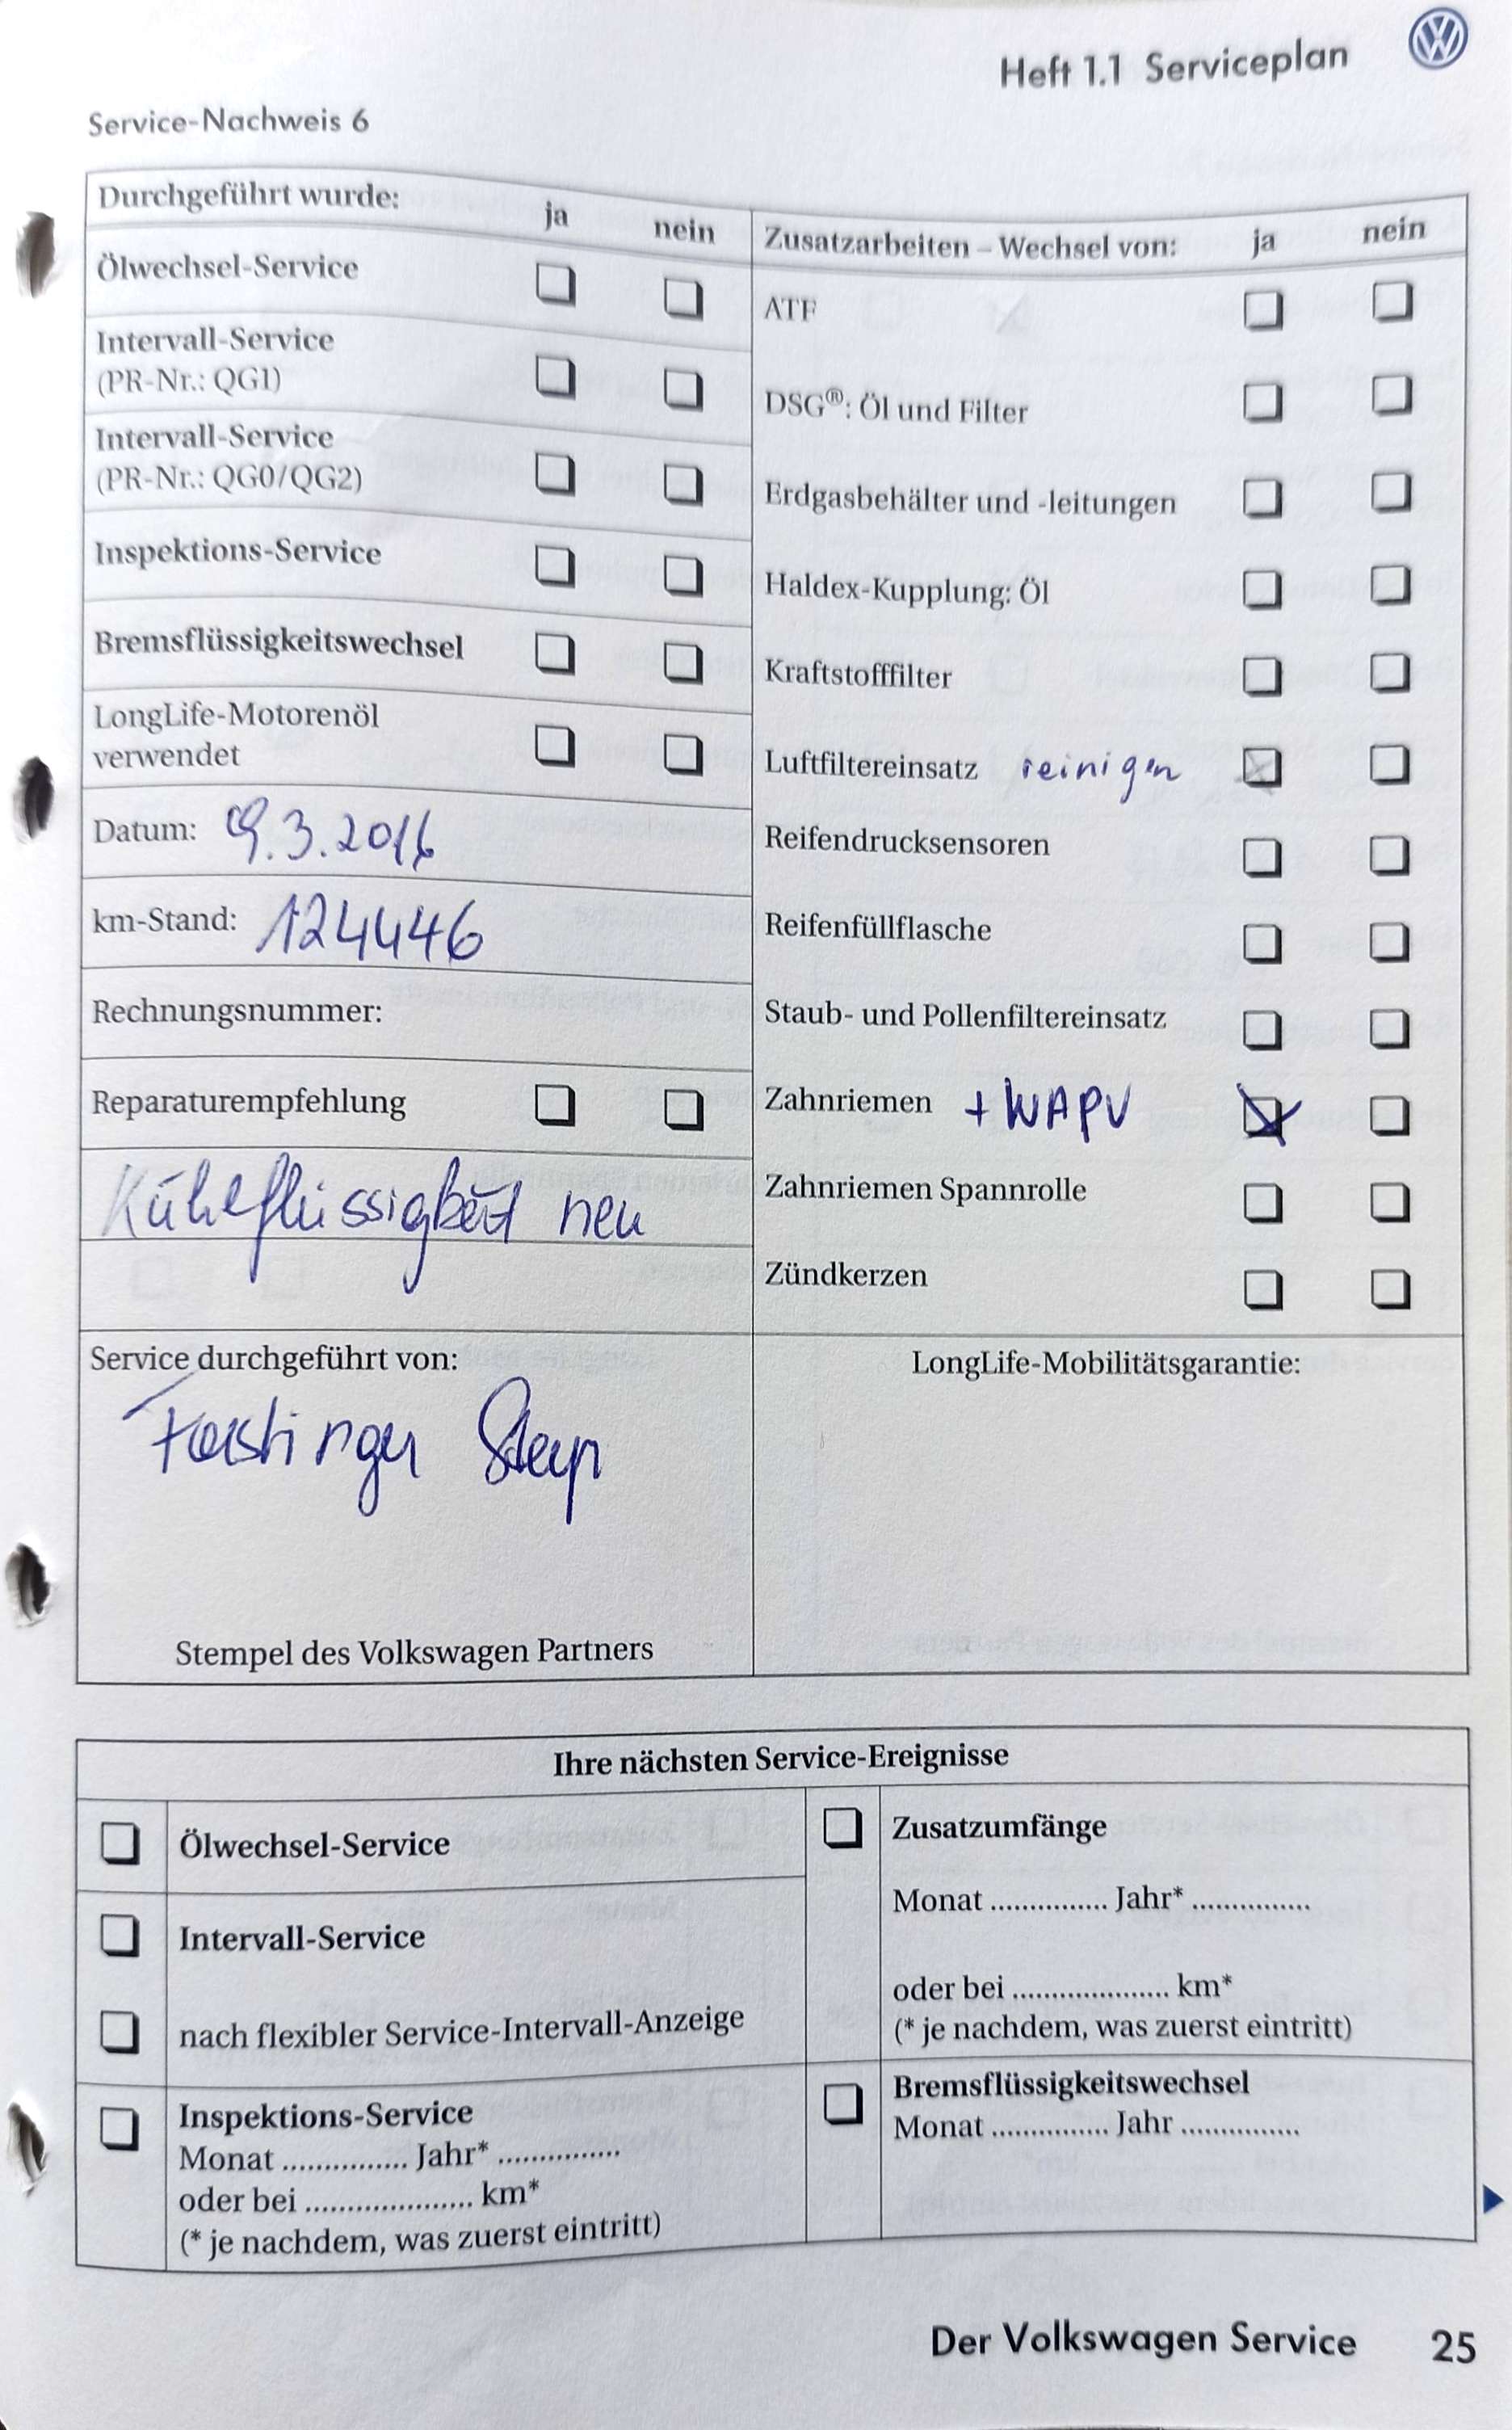 Heft 1.1 Serviceplan
Service-Nachweis 6
Durchgeführt wurde: ja nein
Ölwechsel-Service
Intervall-Service
(PR-Nr.: QG1)
Intervall-Service
(PR-Nr.: QG0/QG2)
Inspektions-Service
Bremsflüssigkeitswechsel
LongLife-Motorenöl
verwendet
Datum: 9.3.2016
km-Stand: 124446
Rechnungsnummer:
Reparaturempfehlung
Kühlflüssigkeit neu
Zusatzarbeiten – Wechsel von: ja nein
ATF
DSG®: Öl und Filter
Erdgasbehälter und -leitungen
Haldex-Kupplung: Öl
Kraftstofffilter
Luftfiltereinsatz reinigen
Reifendrucksensoren
Reifenfüllflasche
Staub- und Pollenfiltereinsatz
Zahnriemen + WAPU
Zahnriemen Spannrolle
Zündkerzen
Service durchgeführt von:
Forstinger Steyr
Stempel des Volkswagen Partners
LongLife-Mobilitätsgarantie:
Ihre nächsten Service-Ereignisse
Ölwechsel-Service
Intervall-Service
nach flexibler Service-Intervall-Anzeige
Inspektions-Service
Monat ............... Jahr* ...............
oder bei .................... km*
(* je nachdem, was zuerst eintritt)
Zusatzumfänge
Monat ............... Jahr* ...............
oder bei .................... km*
(* je nachdem, was zuerst eintritt)
Bremsflüssigkeitswechsel
Monat ............... Jahr ...............
Der Volkswagen Service 25